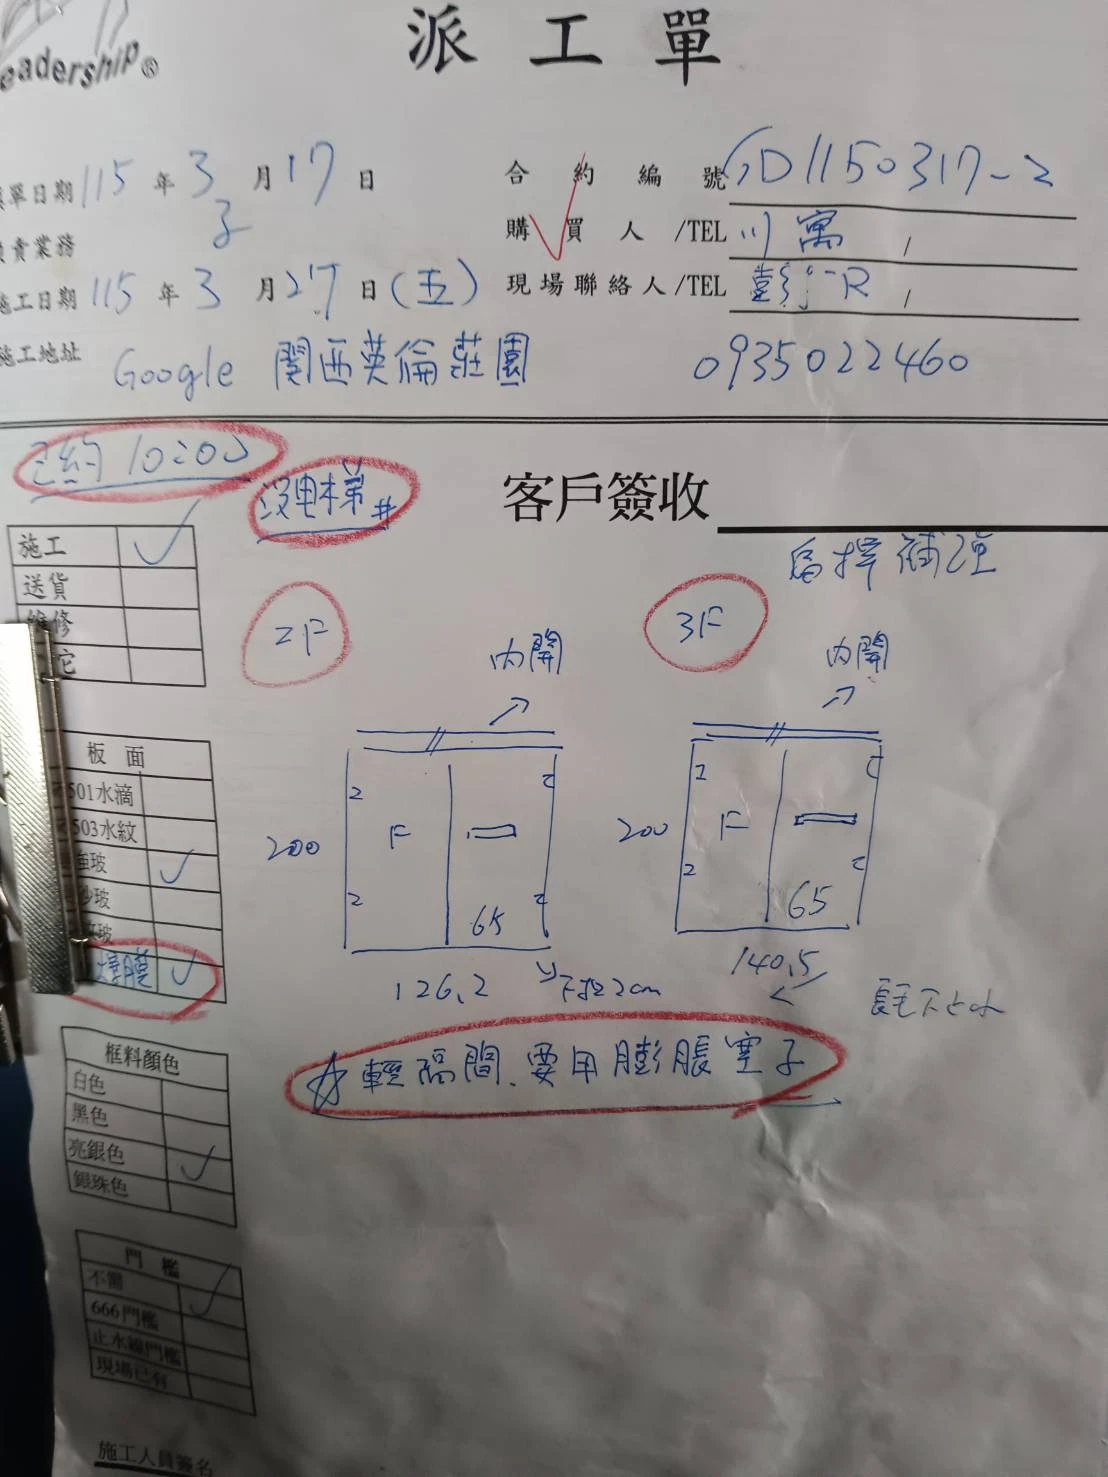 eadership®
派工單
單日期 115 年 3 月 17 日
合約編號 D1150317-2
責業務
購買人/TEL 川寓 /
施工日期 115 年 3 月 27 日 (五)
現場聯絡人/TEL 彭 R /
施工地址 Google 関西英倫莊園
0935022460
已約 10:00
沒电梯#
客戶簽收
施工 ✓
送貨
維修
它
2F
內開
200
F
65
126.2
下 2cm
3F
內開
200
F
65
140.5
☆輕隔間.要用膨脹塞子
板面
501水滴
503水紋
強玻 ✓
砂玻
玻
爆膜 ✓
框料顏色
白色
黑色
亮銀色 ✓
銀珠色
門檻
不需 ✓
666門檻
止水線門檻
現場已有
施工人員簽名